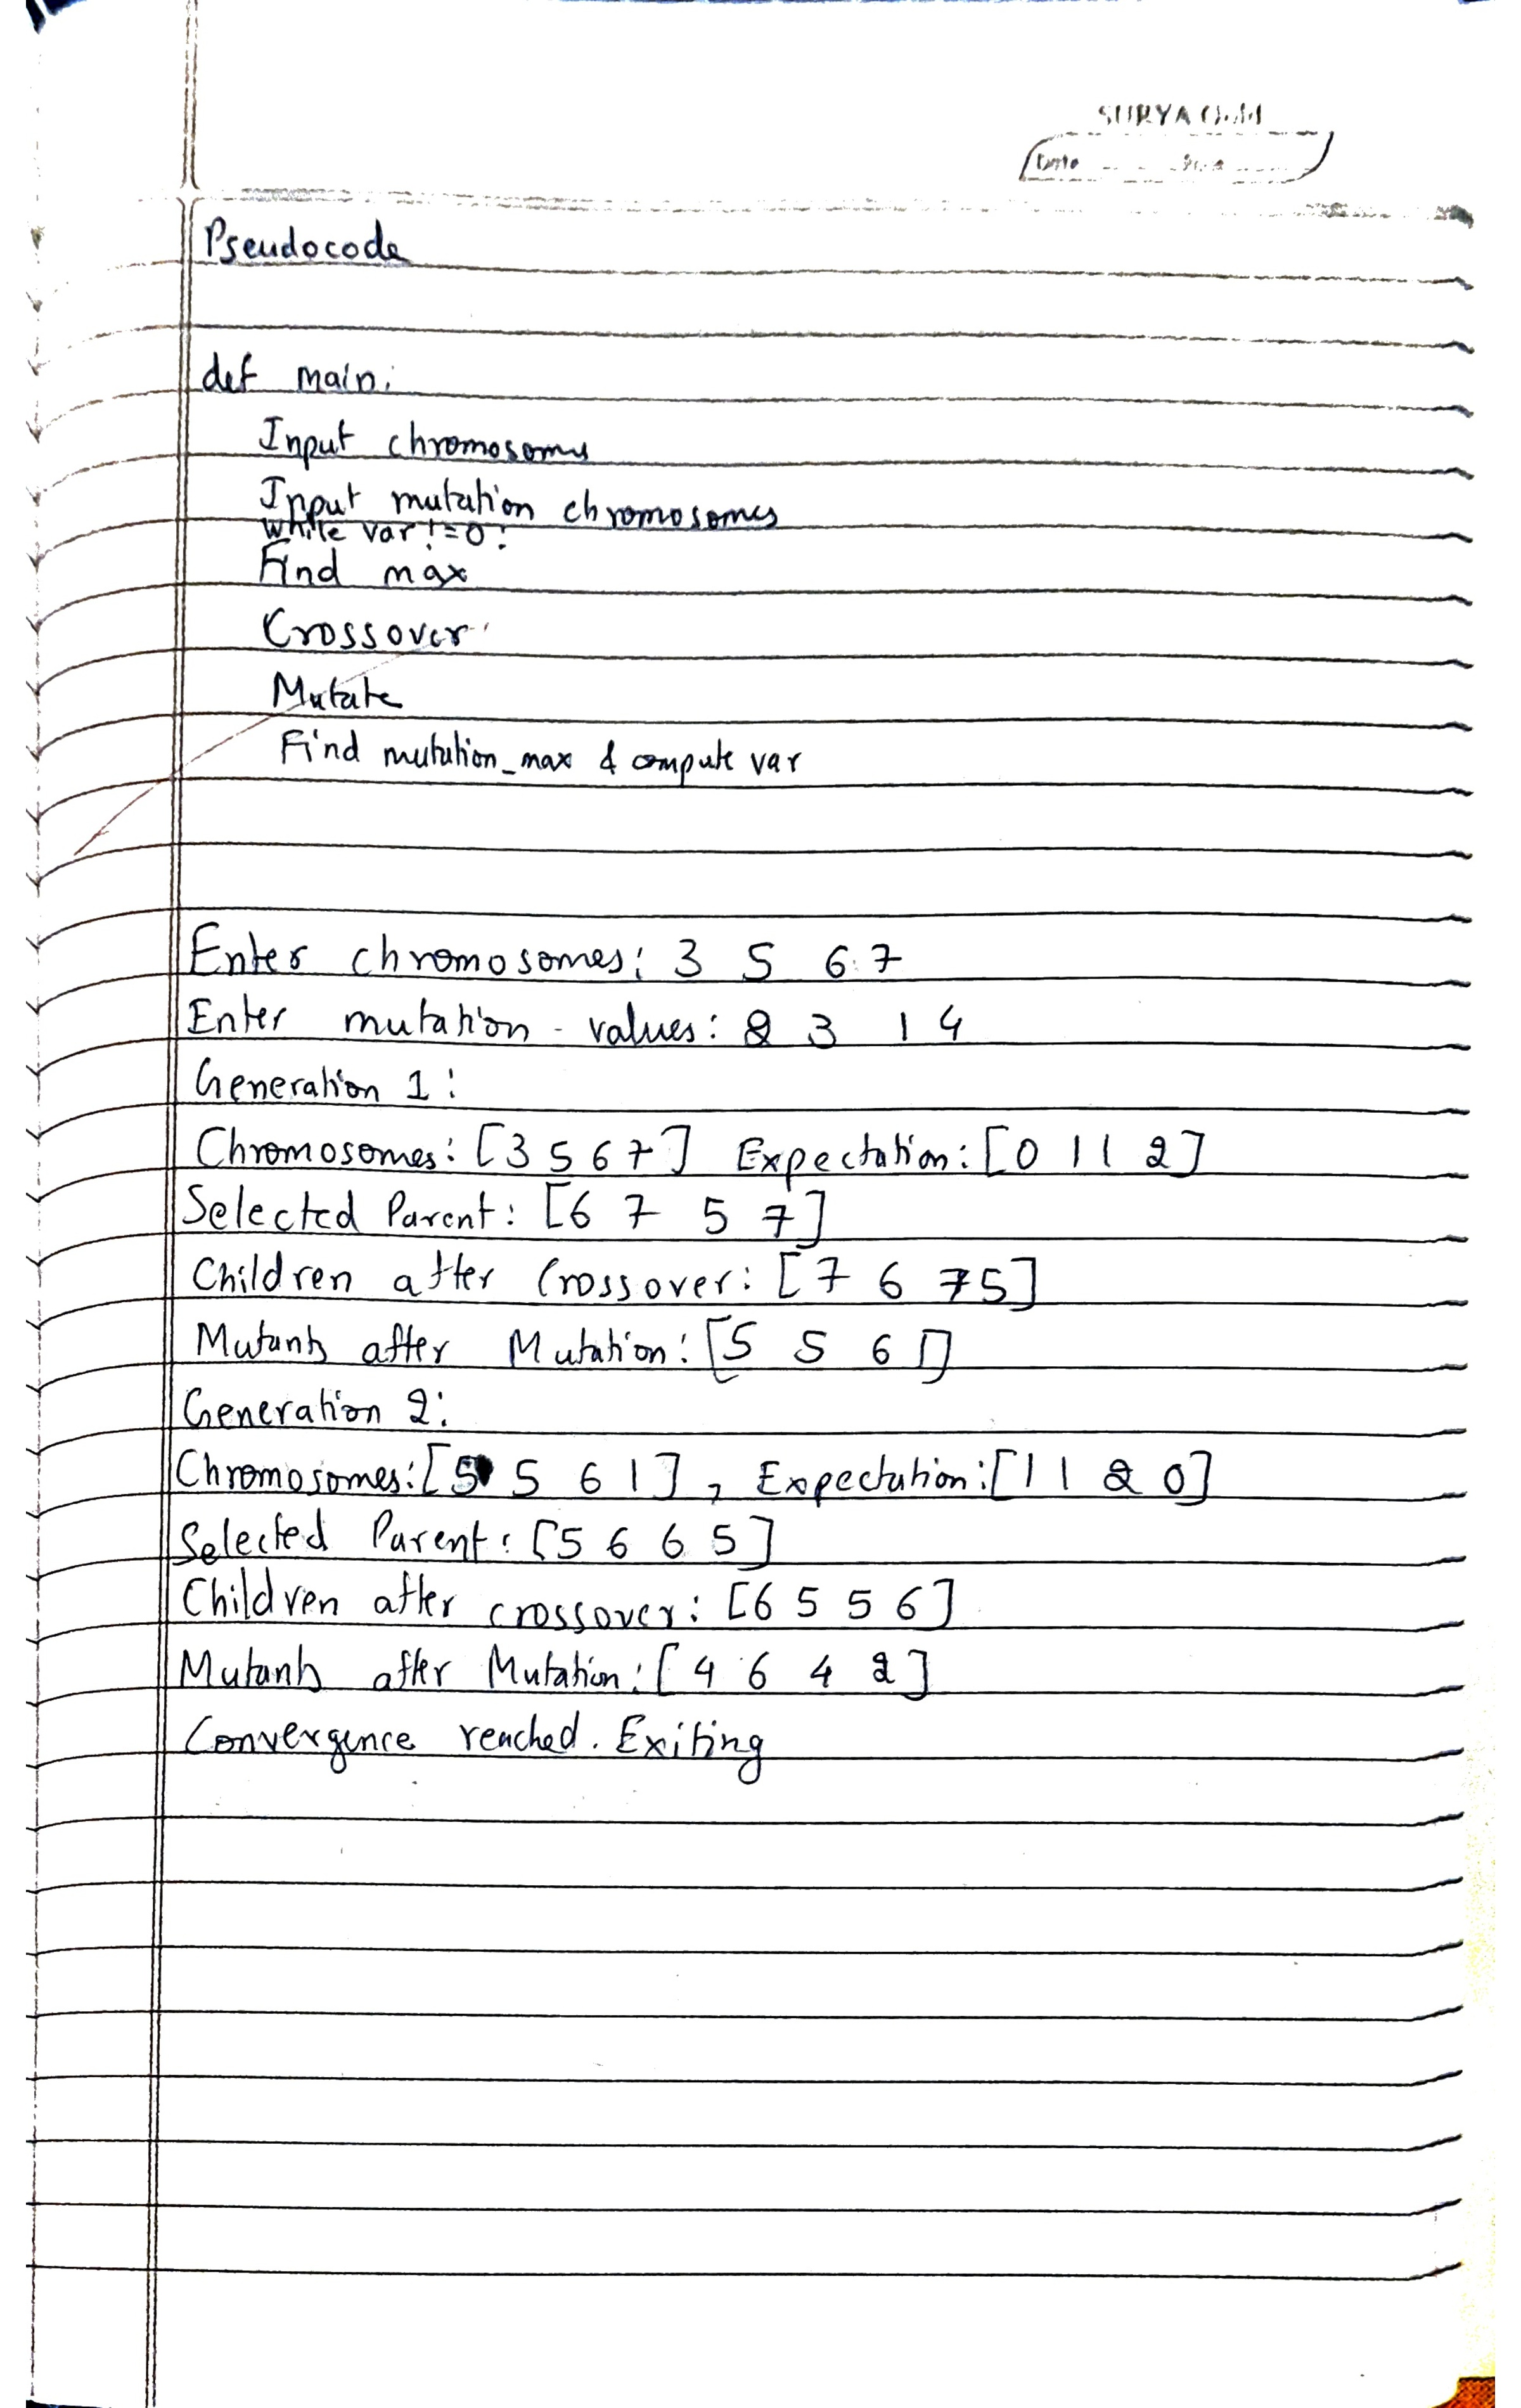 SURYA Gold
Date
Pseudocode
def main:
Input chromosomes
Input mutation chromosomes
while var != 0:
Find max
Crossover
Mutate
Find mutation_max & compute var
Enter chromosomes: 3 5 6 7
Enter mutation - values: 2 3 1 4
Generation 1:
Chromosomes: [3 5 6 7] Expectation: [0 1 1 2]
Selected Parent: [6 7 5 7]
Children after Crossover: [7 6 7 5]
Mutants after Mutation: [5 5 6 1]
Generation 2:
Chromosomes: [5 5 6 1], Expectation: [1 1 2 0]
Selected Parent: [5 6 6 5]
Children after crossover: [6 5 5 6]
Mutants after Mutation: [4 6 4 2]
Convergence reached. Exiting